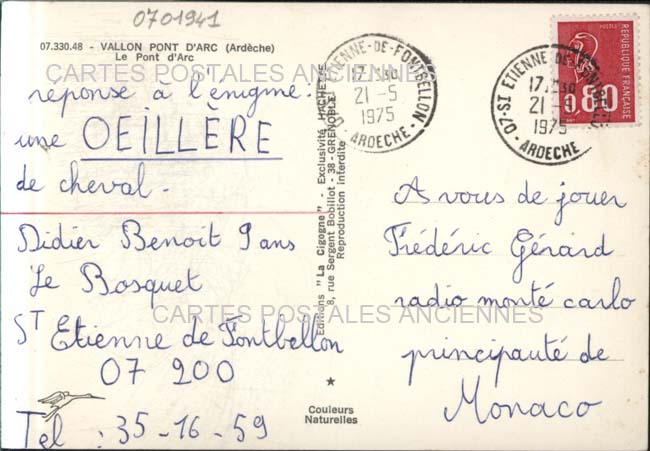 0701941
07.330.48 - VALLON PONT D'ARC (Ardèche)
Le Pont d'Arc
CARTES POSTALES ANCIENNES
réponse à l'énigme :
une OEILLÈRE
de cheval.
Didier Benoit 9 ans
Le Bosquet
CARTES POSTALES ANCIENNES
ST Etienne de Fontbellon
07 200
Tel : 35-16-59
Editions "La Cigogne" - Exclusivité HACHETTE
8, rue Sergent Bobillot - 38 - GRENOBLE
Reproduction interdite
Couleurs
Naturelles
17 30
21 - 5
1975
ARDECHE
07-ST ETIENNE-DE-FONTBELLON
17 30
21 - 5
1975
ARDECHE
POSTES
REPUBLIQUE FRANÇAISE
0.80
A vous de jouer
Frédéric Gérard
radio monté carlo
principauté de
Monaco